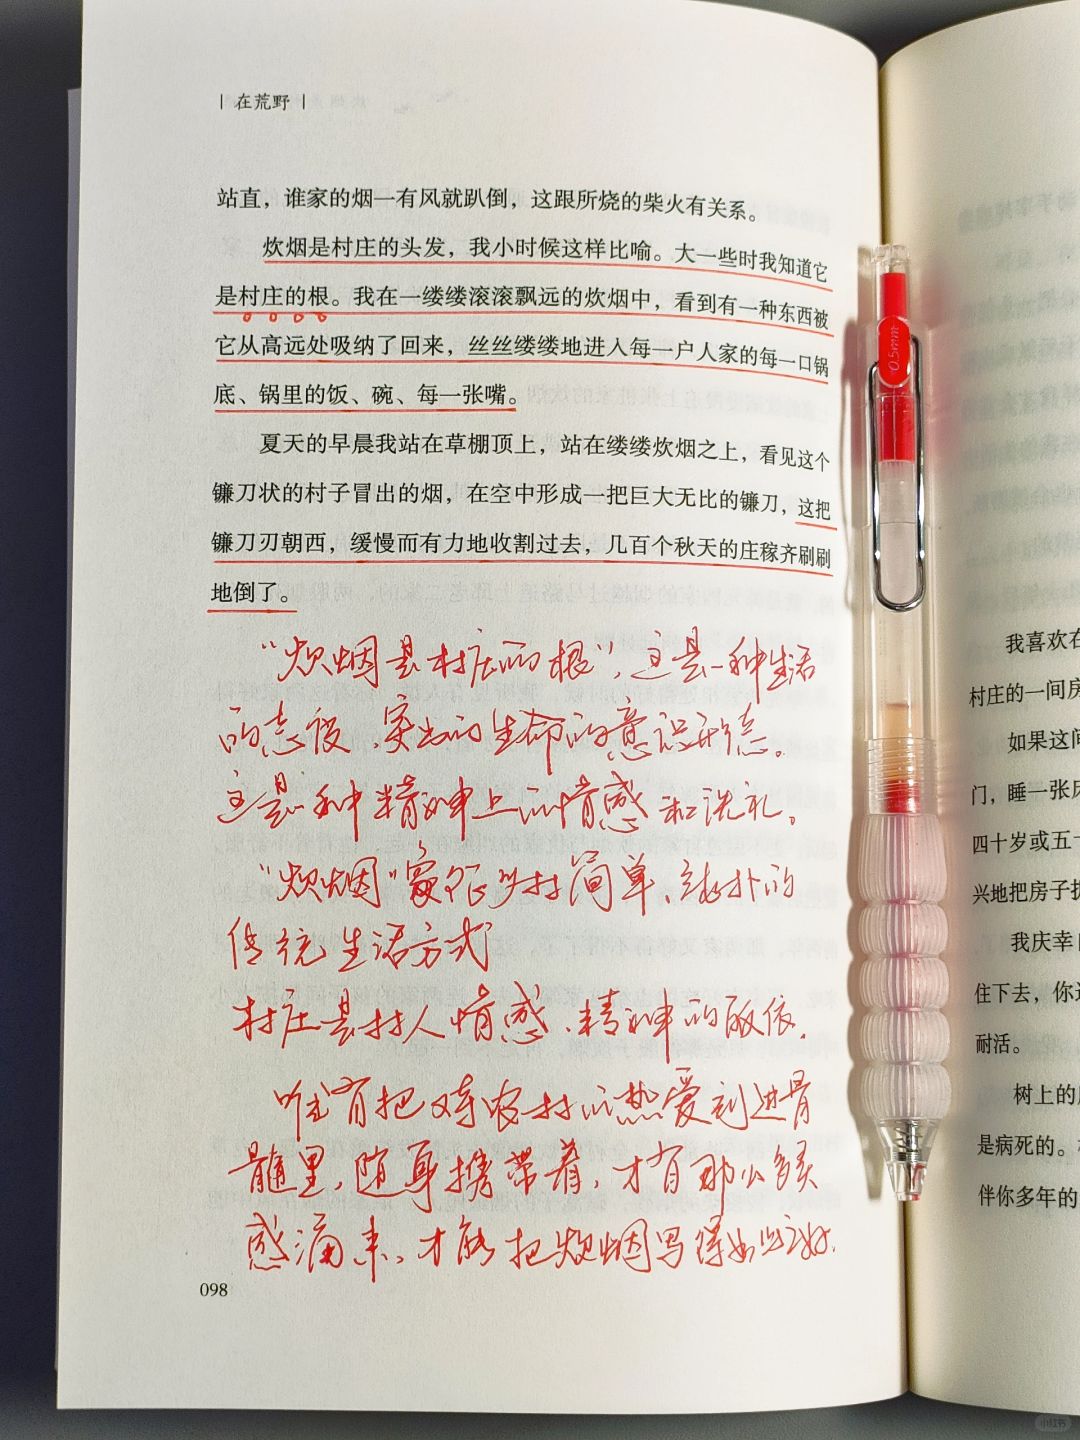 | 在荒野 |
站直，谁家的烟一有风就趴倒，这跟所烧的柴火有关系。
炊烟是村庄的头发，我小时候这样比喻。大一些时我知道它
是村庄的根。我在一缕缕滚滚飘远的炊烟中，看到有一种东西被
它从高远处吸纳了回来，丝丝缕缕地进入每一户人家的每一口锅
底、锅里的饭、碗、每一张嘴。
夏天的早晨我站在草棚顶上，站在缕缕炊烟之上，看见这个
镰刀状的村子冒出的烟，在空中形成一把巨大无比的镰刀，这把
镰刀刃朝西，缓慢而有力地收割过去，几百个秋天的庄稼齐刷刷
地倒了。
“炊烟是村庄的根”，这是一种生活
的态度、突出的生命的意识形态。
这是一种精神上的情感和洗礼。
“炊烟”象征乡村简单、古朴的
传统生活方式
村庄是村人情感、精神的皈依.
唯有把对农村的热爱刻进骨
髓里，随身携带着，才有那么多灵
感涌来、才能把炊烟写得如此之好.
098
我喜欢在
村庄的一间房
如果这间
门，睡一张床
四十岁或五十
兴地把房子拆
我庆幸自
住下去，你
耐活。
树上的
是病死的。
伴你多年的
0.5mm
小红书